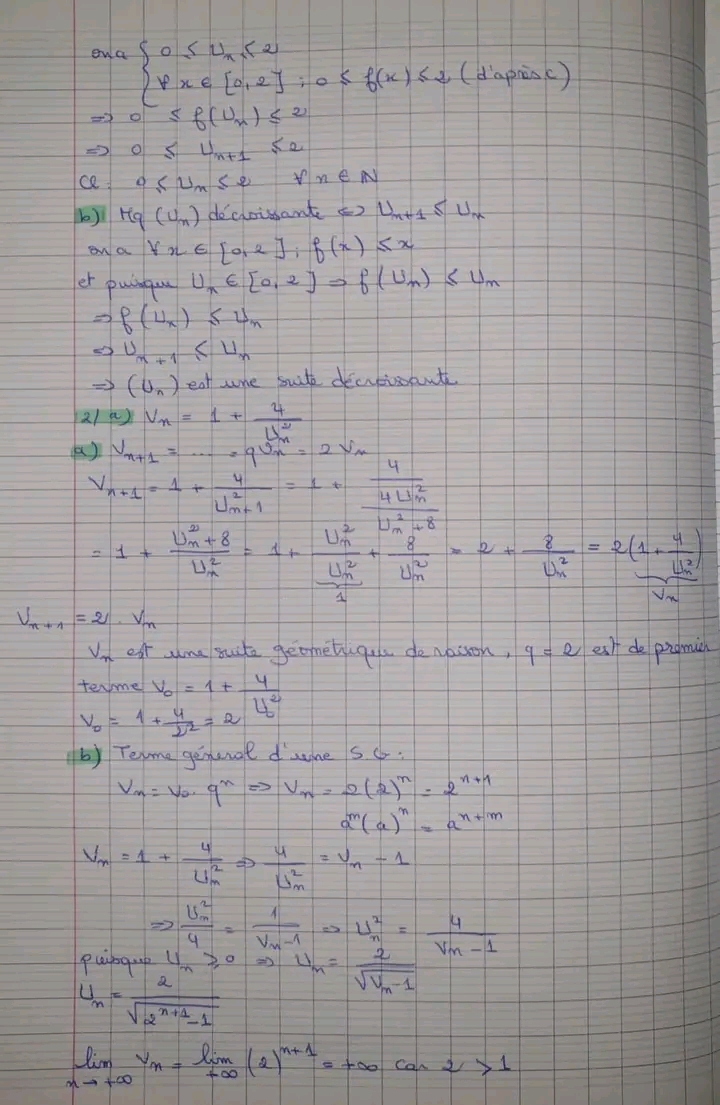 on a { 0 ≤ Un ≤ 2
{ ∀ x ∈ [0,2] ; 0 ≤ f(x) ≤ 2 (d'après c)
=> 0 ≤ f(Un) ≤ 2
=> 0 ≤ Un+1 ≤ 2
Cl : 0 ≤ Un ≤ 2 ∀ n ∈ ℕ
b) Mq (Un) décroissante <=> Un+1 ≤ Un
on a ∀ x ∈ [0,2] ; f(x) ≤ x
et puisque Un ∈ [0,2] => f(Un) ≤ Un
=> f(Un) ≤ Un
=> Un+1 ≤ Un
=> (Un) est une suite décroissante
2/ a) Vn = 1 + 4/Un²
a) Vn+1 = .... = qVn = 2 Vn
Vn+1 = 1 + 4/U²n+1 = 1 + 4/(4Un²/(Un²+8))
= 1 + (Un²+8)/Un² = 1 + Un²/Un² (1) + 8/Un² = 2 + 8/Un² = 2(1 + 4/Un²) Vn
Vn+1 = 2 . Vn
Vn est une suite géométrique de raison, q = 2 est de premier
terme V0 = 1 + 4/U²
V0 = 1 + 4/2² = 2
b) Terme géneral d'une S.G :
Vn = V0 . qⁿ => Vn = 2(2)ⁿ = 2ⁿ⁺¹
aᵐ(a)ⁿ = aⁿ⁺ᵐ
Vn = 1 + 4/Un² => 4/Un² = Vn - 1
=> Un²/4 = 1/(Vn-1) => Un² = 4/(Vn - 1)
puisque Un ≥ 0 => Un = 2/√(Vn-1)
Un = 2/√(2ⁿ⁺¹-1)
lim n→+∞ Vn = lim +∞ (2)ⁿ⁺¹ = +∞ car 2 > 1